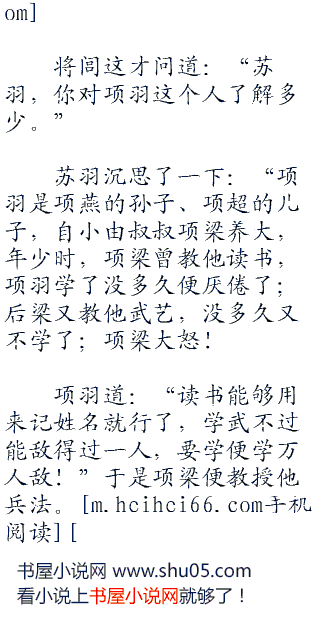 om]
将闾这才问道：“苏
羽，你对项羽这个人了解多
少。”
苏羽沉思了一下：“项
羽是项燕的孙子、项超的儿
子，自小由叔叔项梁养大，
年少时，项梁曾教他读书，
项羽学了没多久便厌倦了；
后梁又教他武艺，没多久又
不学了；项梁大怒！
项羽道：“读书能够用
来记姓名就行了，学武不过
能敌得过一人，要学便学万
人敌！”于是项梁便教授他
兵法。[m.hcihci66.com手机
阅读][
书屋小说网 www.shu05.com
看小说上书屋小说网就够了！